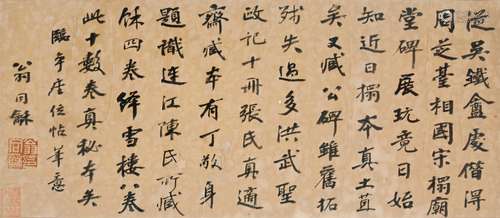 吳鐵盦處借得
周芝臺相國宋搨廟
堂碑展玩竟日始
知近日搨本真土苴
矣又藏公碑雖舊拓
殘失過多洪武聖
政記十冊張氏真適
齋藏本有丁敬身
題識連江陳氏所藏
四卷絳雪樓八卷
此十數卷真秘本矣
臨爭座位帖筆意
翁同龢